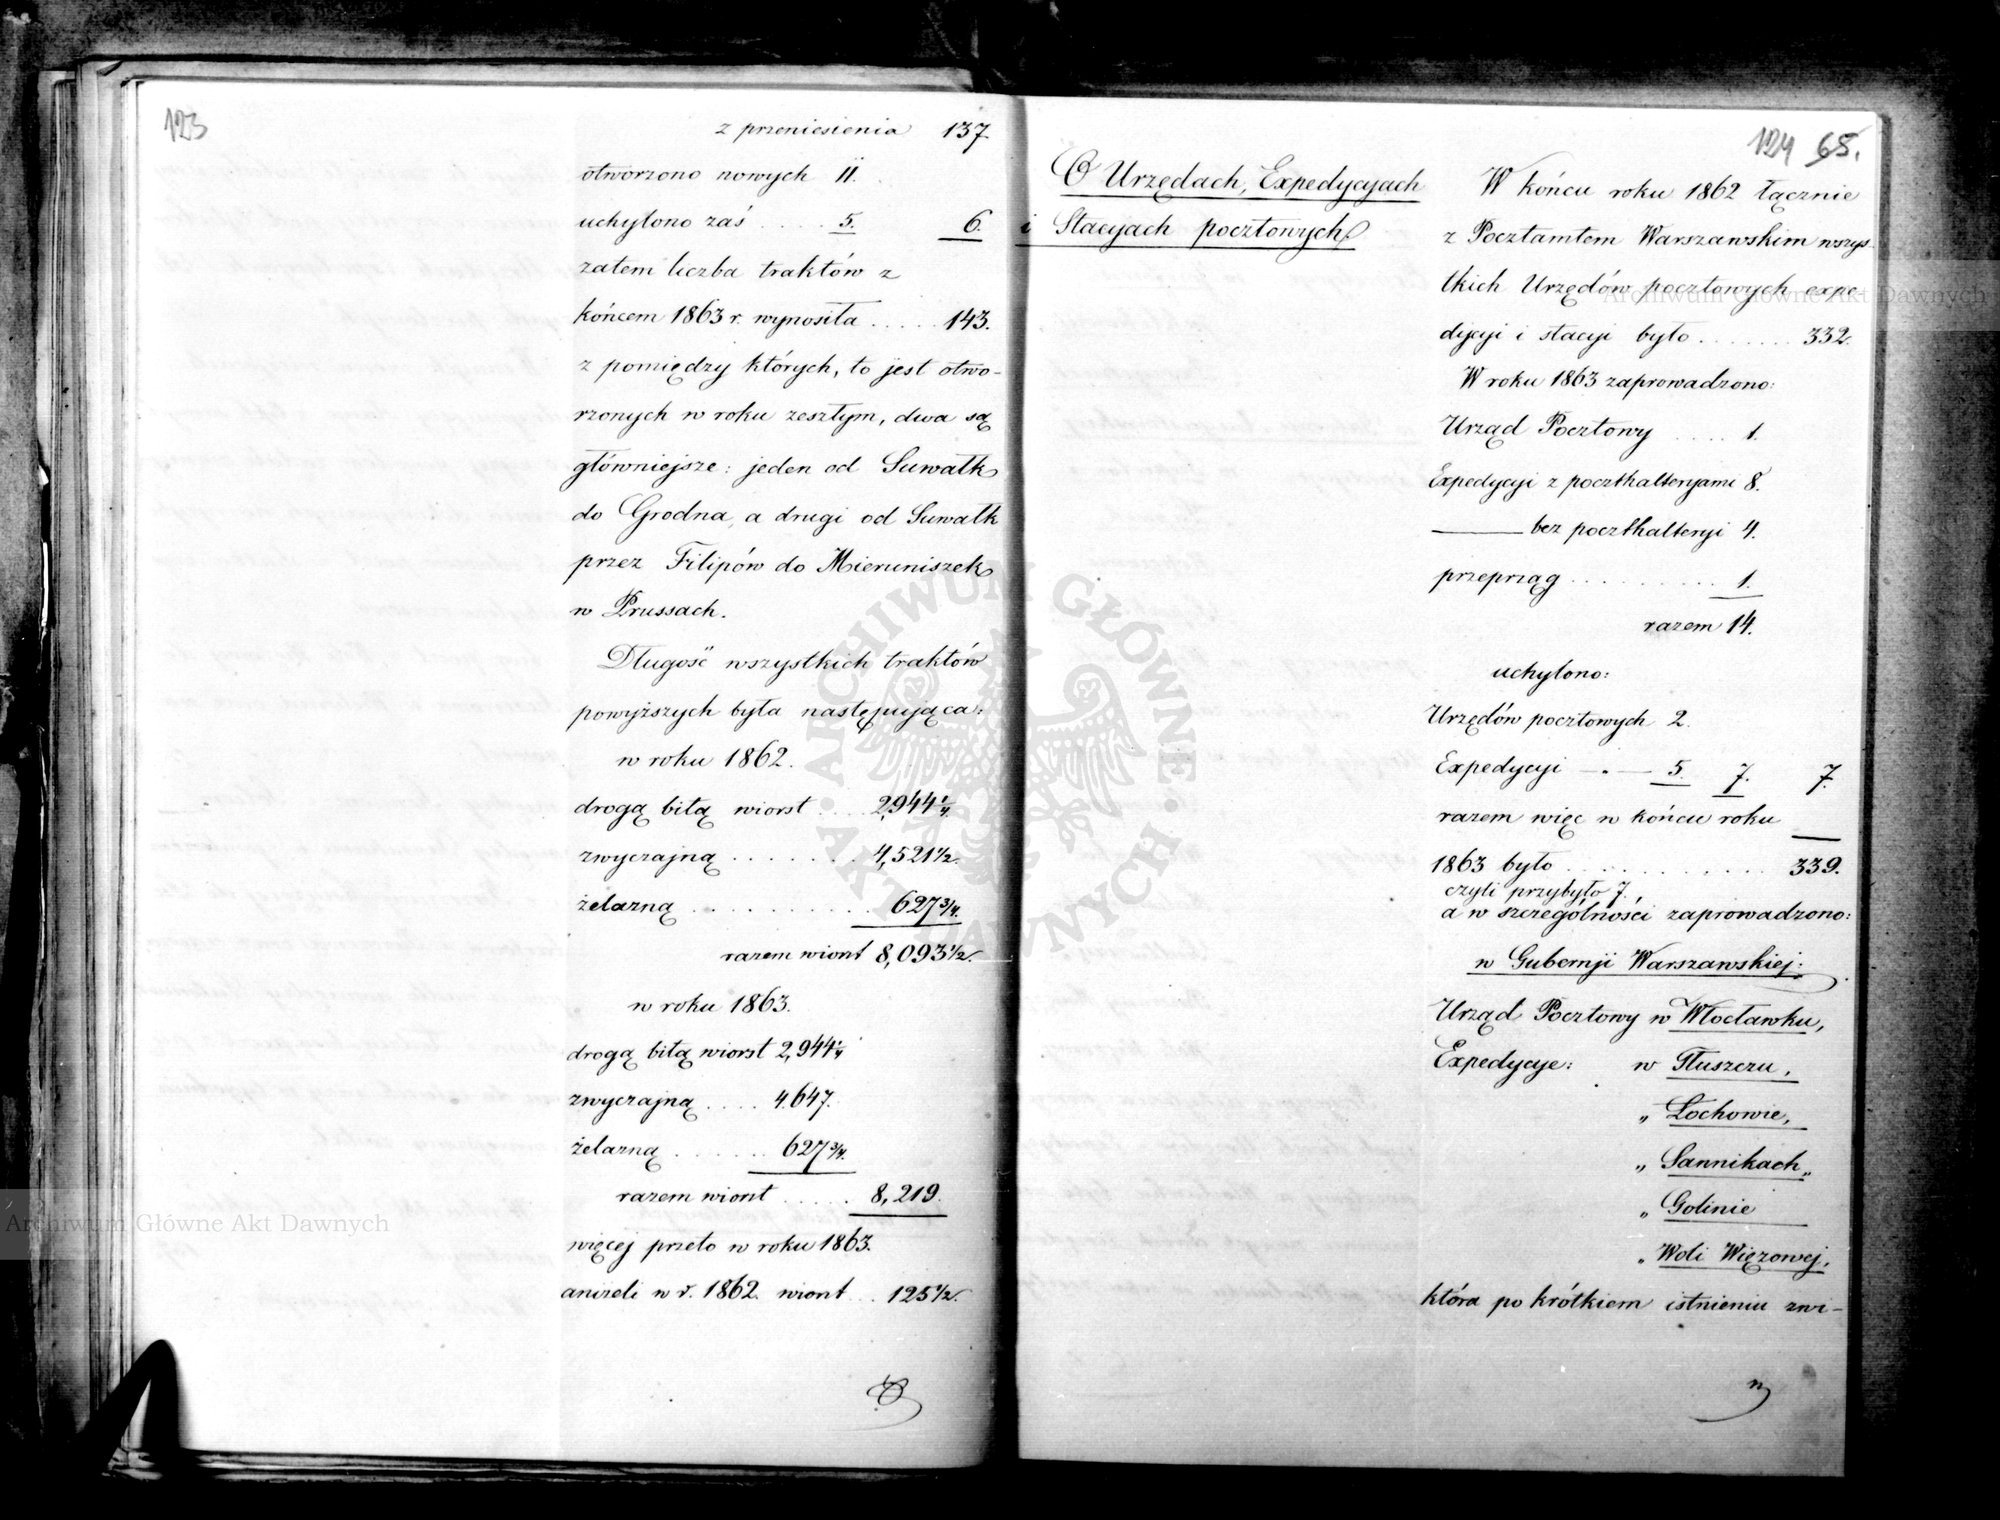 123
z przeniesienia 137.
otworzono nowych 11.
uchylono zaś .... 5. 6.
zatem liczba traktów z
końcem 1863 r. wynosiła ..... 143.
z pomiędzy których, to jest otwo-
rzonych w roku zeszłym, dwa są
główniejsze: jeden od Suwałk
do Grodna, a drugi od Suwałk
przez Filipów do Mieruniszek
w Prussach.
Długość wszystkich traktów
powyższych była następująca:
w roku 1862.
drogą bitą wiorst .... 2,944 1/4
zwyczajną ....... 4,521 1/2.
żelazną .......... 627 3/4.
razem wiorst 8,093 1/2.
w roku 1863.
drogą bitą wiorst 2,944 1/4
zwyczajną .... 4.647.
żelazną ...... 627 3/4.
razem wiorst ..... 8,219.
więcej przeto w roku 1863.
aniżeli w r. 1862. wiorst ... 125 1/2.
124 65.
O Urzędach, Expedycyjach
i Stacyjach pocztowych.
W końcu roku 1862 łącznie
z Pocztamtem Warszawskim wszys-
tkich Urzędów pocztowych expe-
dycyi i stacyi było ....... 332.
W roku 1863 zaprowadzono:
Urząd Pocztowy .... 1.
Expedycyi z poczthalteryami 8.
——— bez poczthalteryi 4.
przeprząg .......... 1.
razem 14.
uchylono:
Urzędów pocztowych 2.
Expedycyi —„— 5. 7. 7.
razem więc w końcu roku
1863 było ........... 339.
czyli przybyło 7.
a w szczególności zaprowadzono:
w Gubernji Warszawskiej:
Urząd Pocztowy w Włocławku,
Expedycye: w Tłuszczu,
„ Łochowie,
„ Sannikach,
„ Golinie
„ Woli Więzowej,
która po krótkiem istnieniu zwi-
Archiwum Główne Akt Dawnych
Archiwum Główne Akt Dawnych
ARCHIWUM GŁÓWNE AKT DAWNYCH